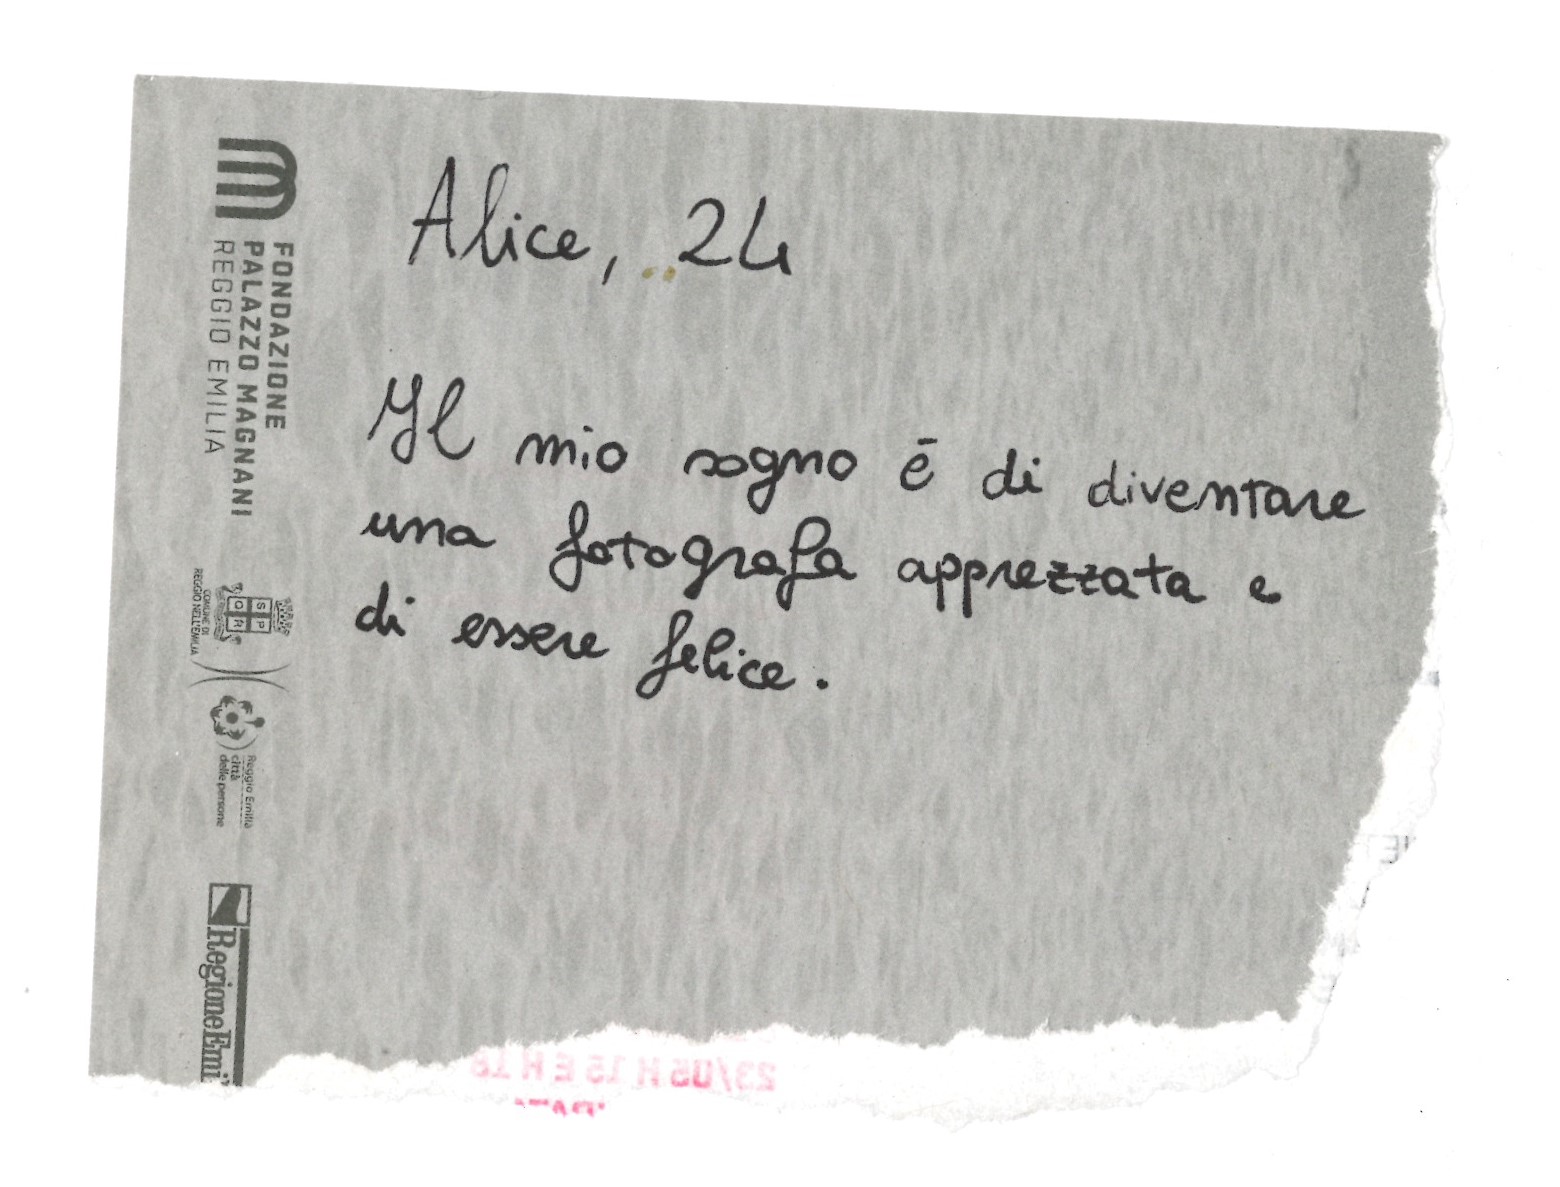 Alice, 24
Il mio sogno è di diventare
una fotografa apprezzata e
di essere felice.
FONDAZIONE
PALAZZO MAGNANI
REGGIO EMILIA
COMUNE DI
REGGIO NELL'EMILIA
Reggio Emilia
città
delle persone
RegioneEmi
23/05 H 15 E H 18